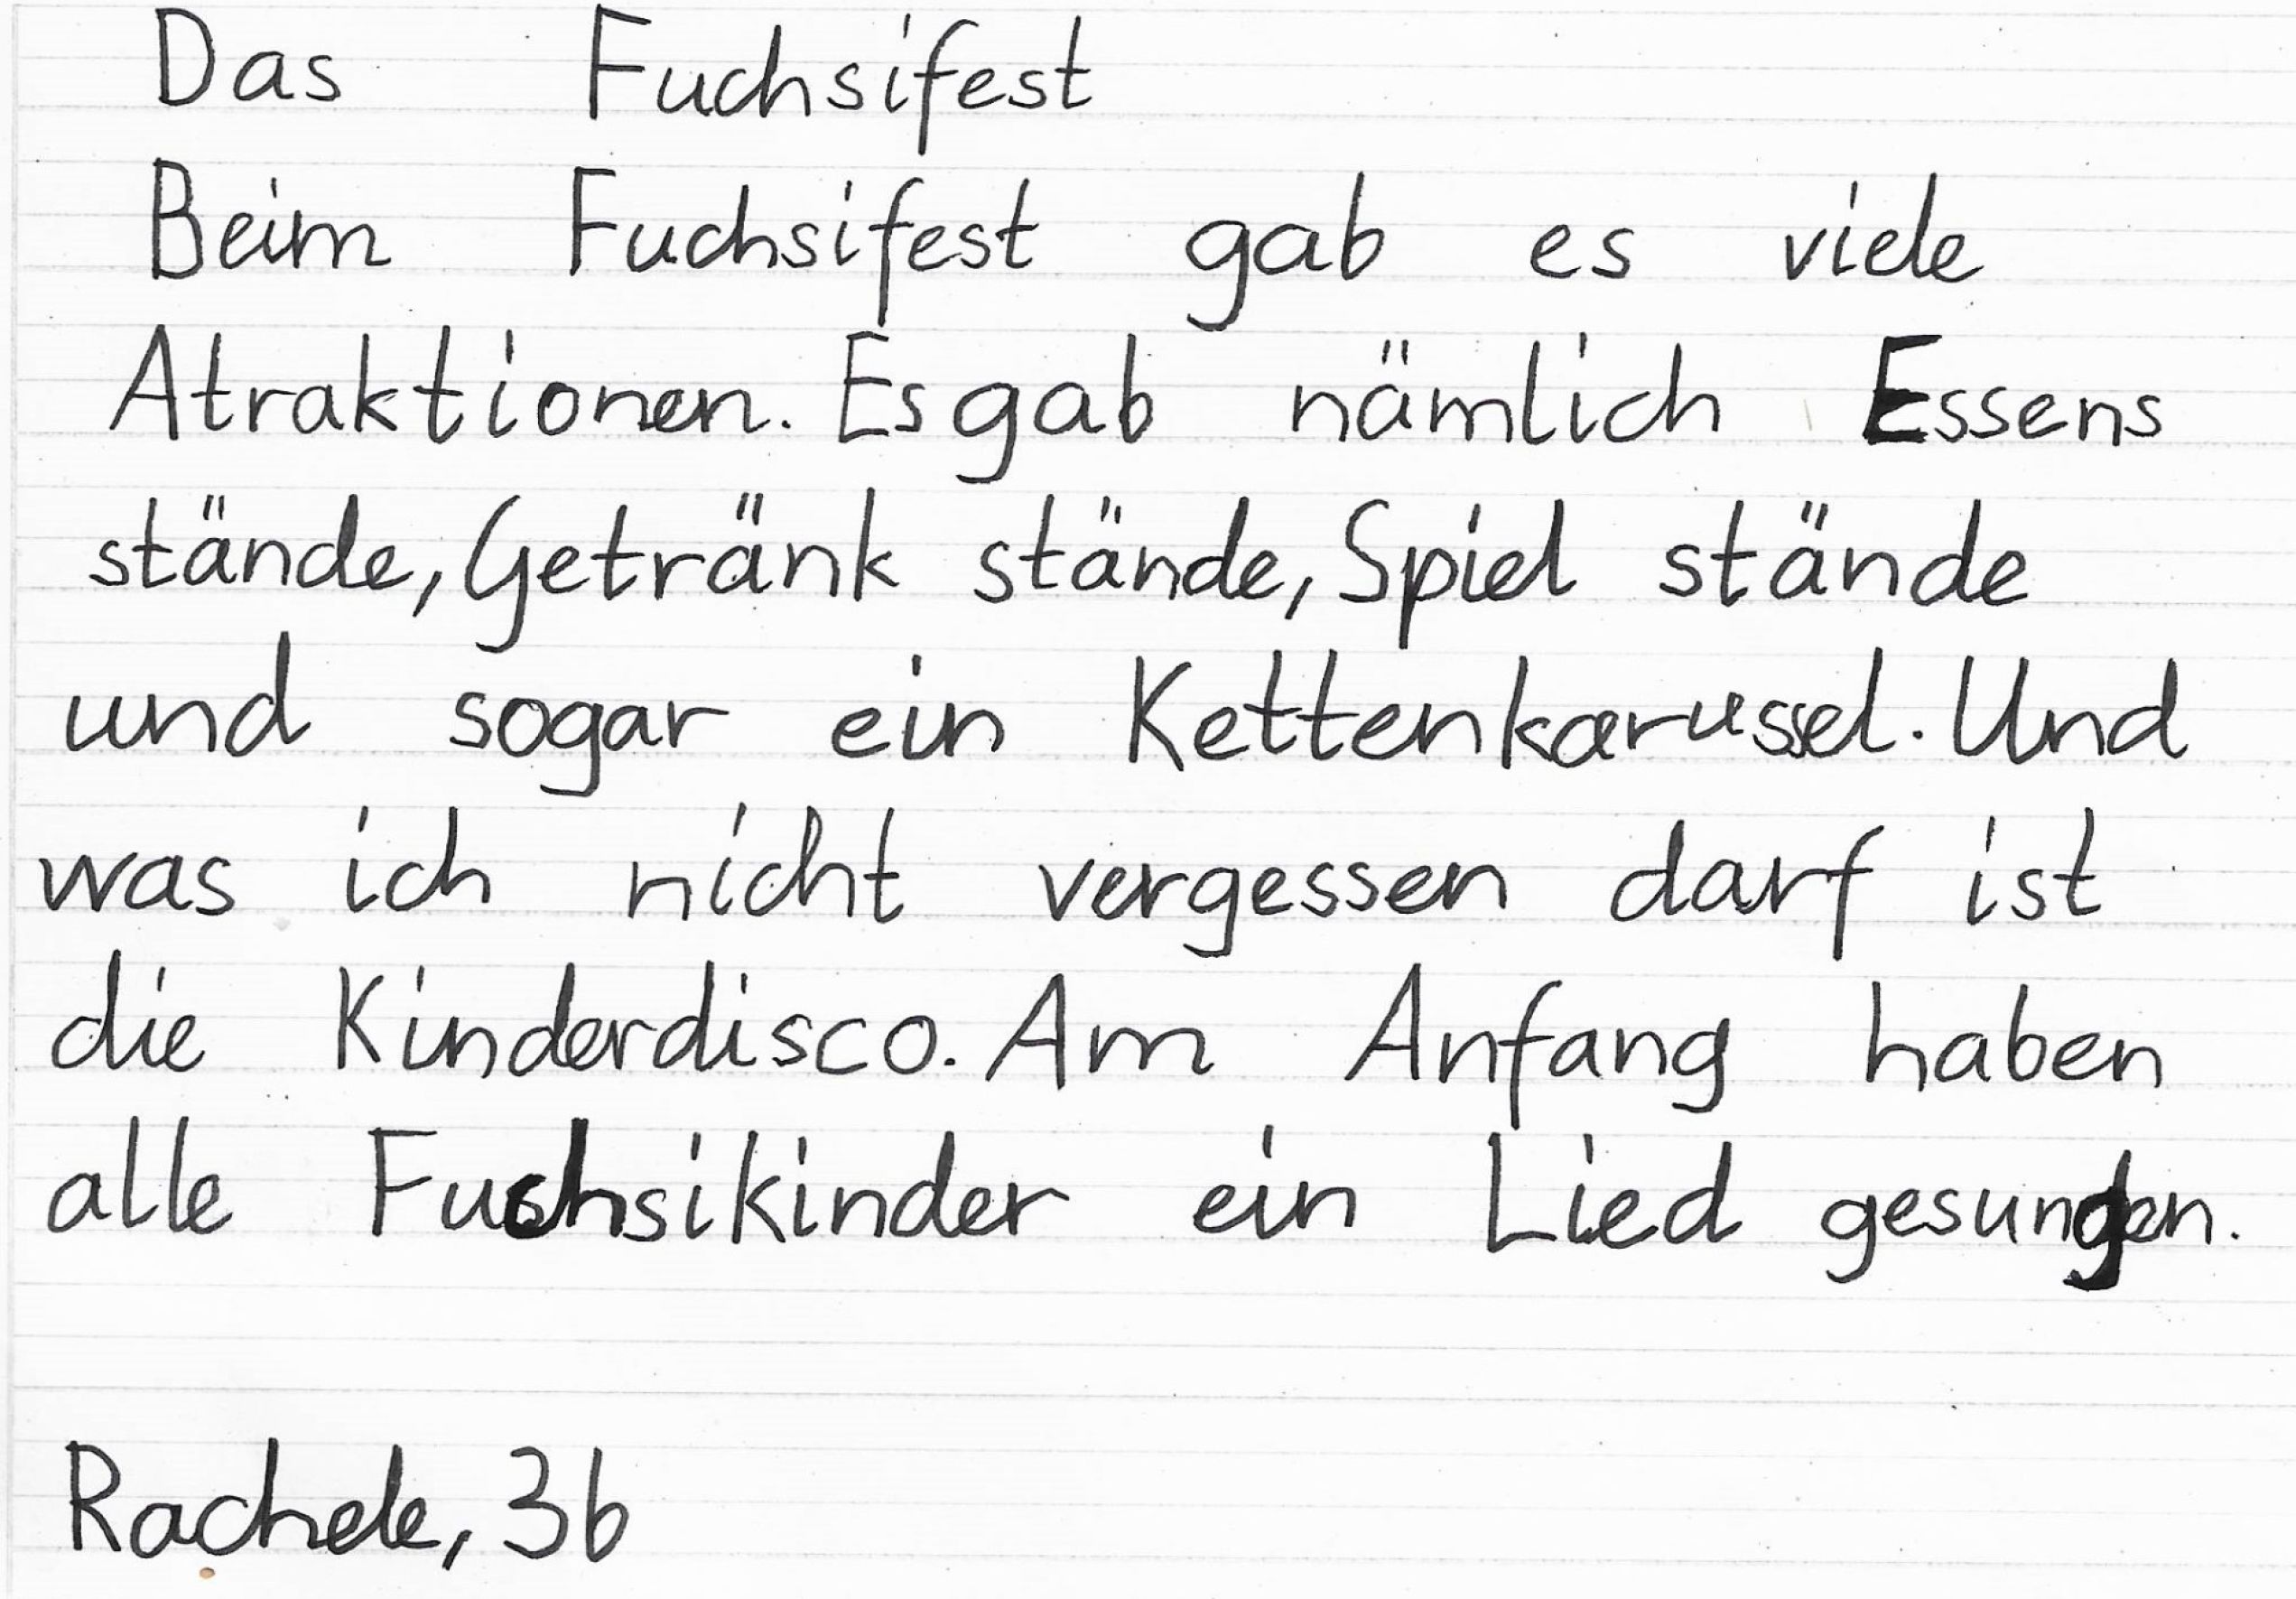 Das Fuchsifest
Beim Fuchsifest gab es viele
Atraktionen. Es gab nämlich Essens
stände, Getränk stände, Spiel stände
und sogar ein Kettenkarussel. Und
was ich nicht vergessen darf ist
die Kinderdisco. Am Anfang haben
alle Fuchsikinder ein Lied gesungen.
Rachele, 3b